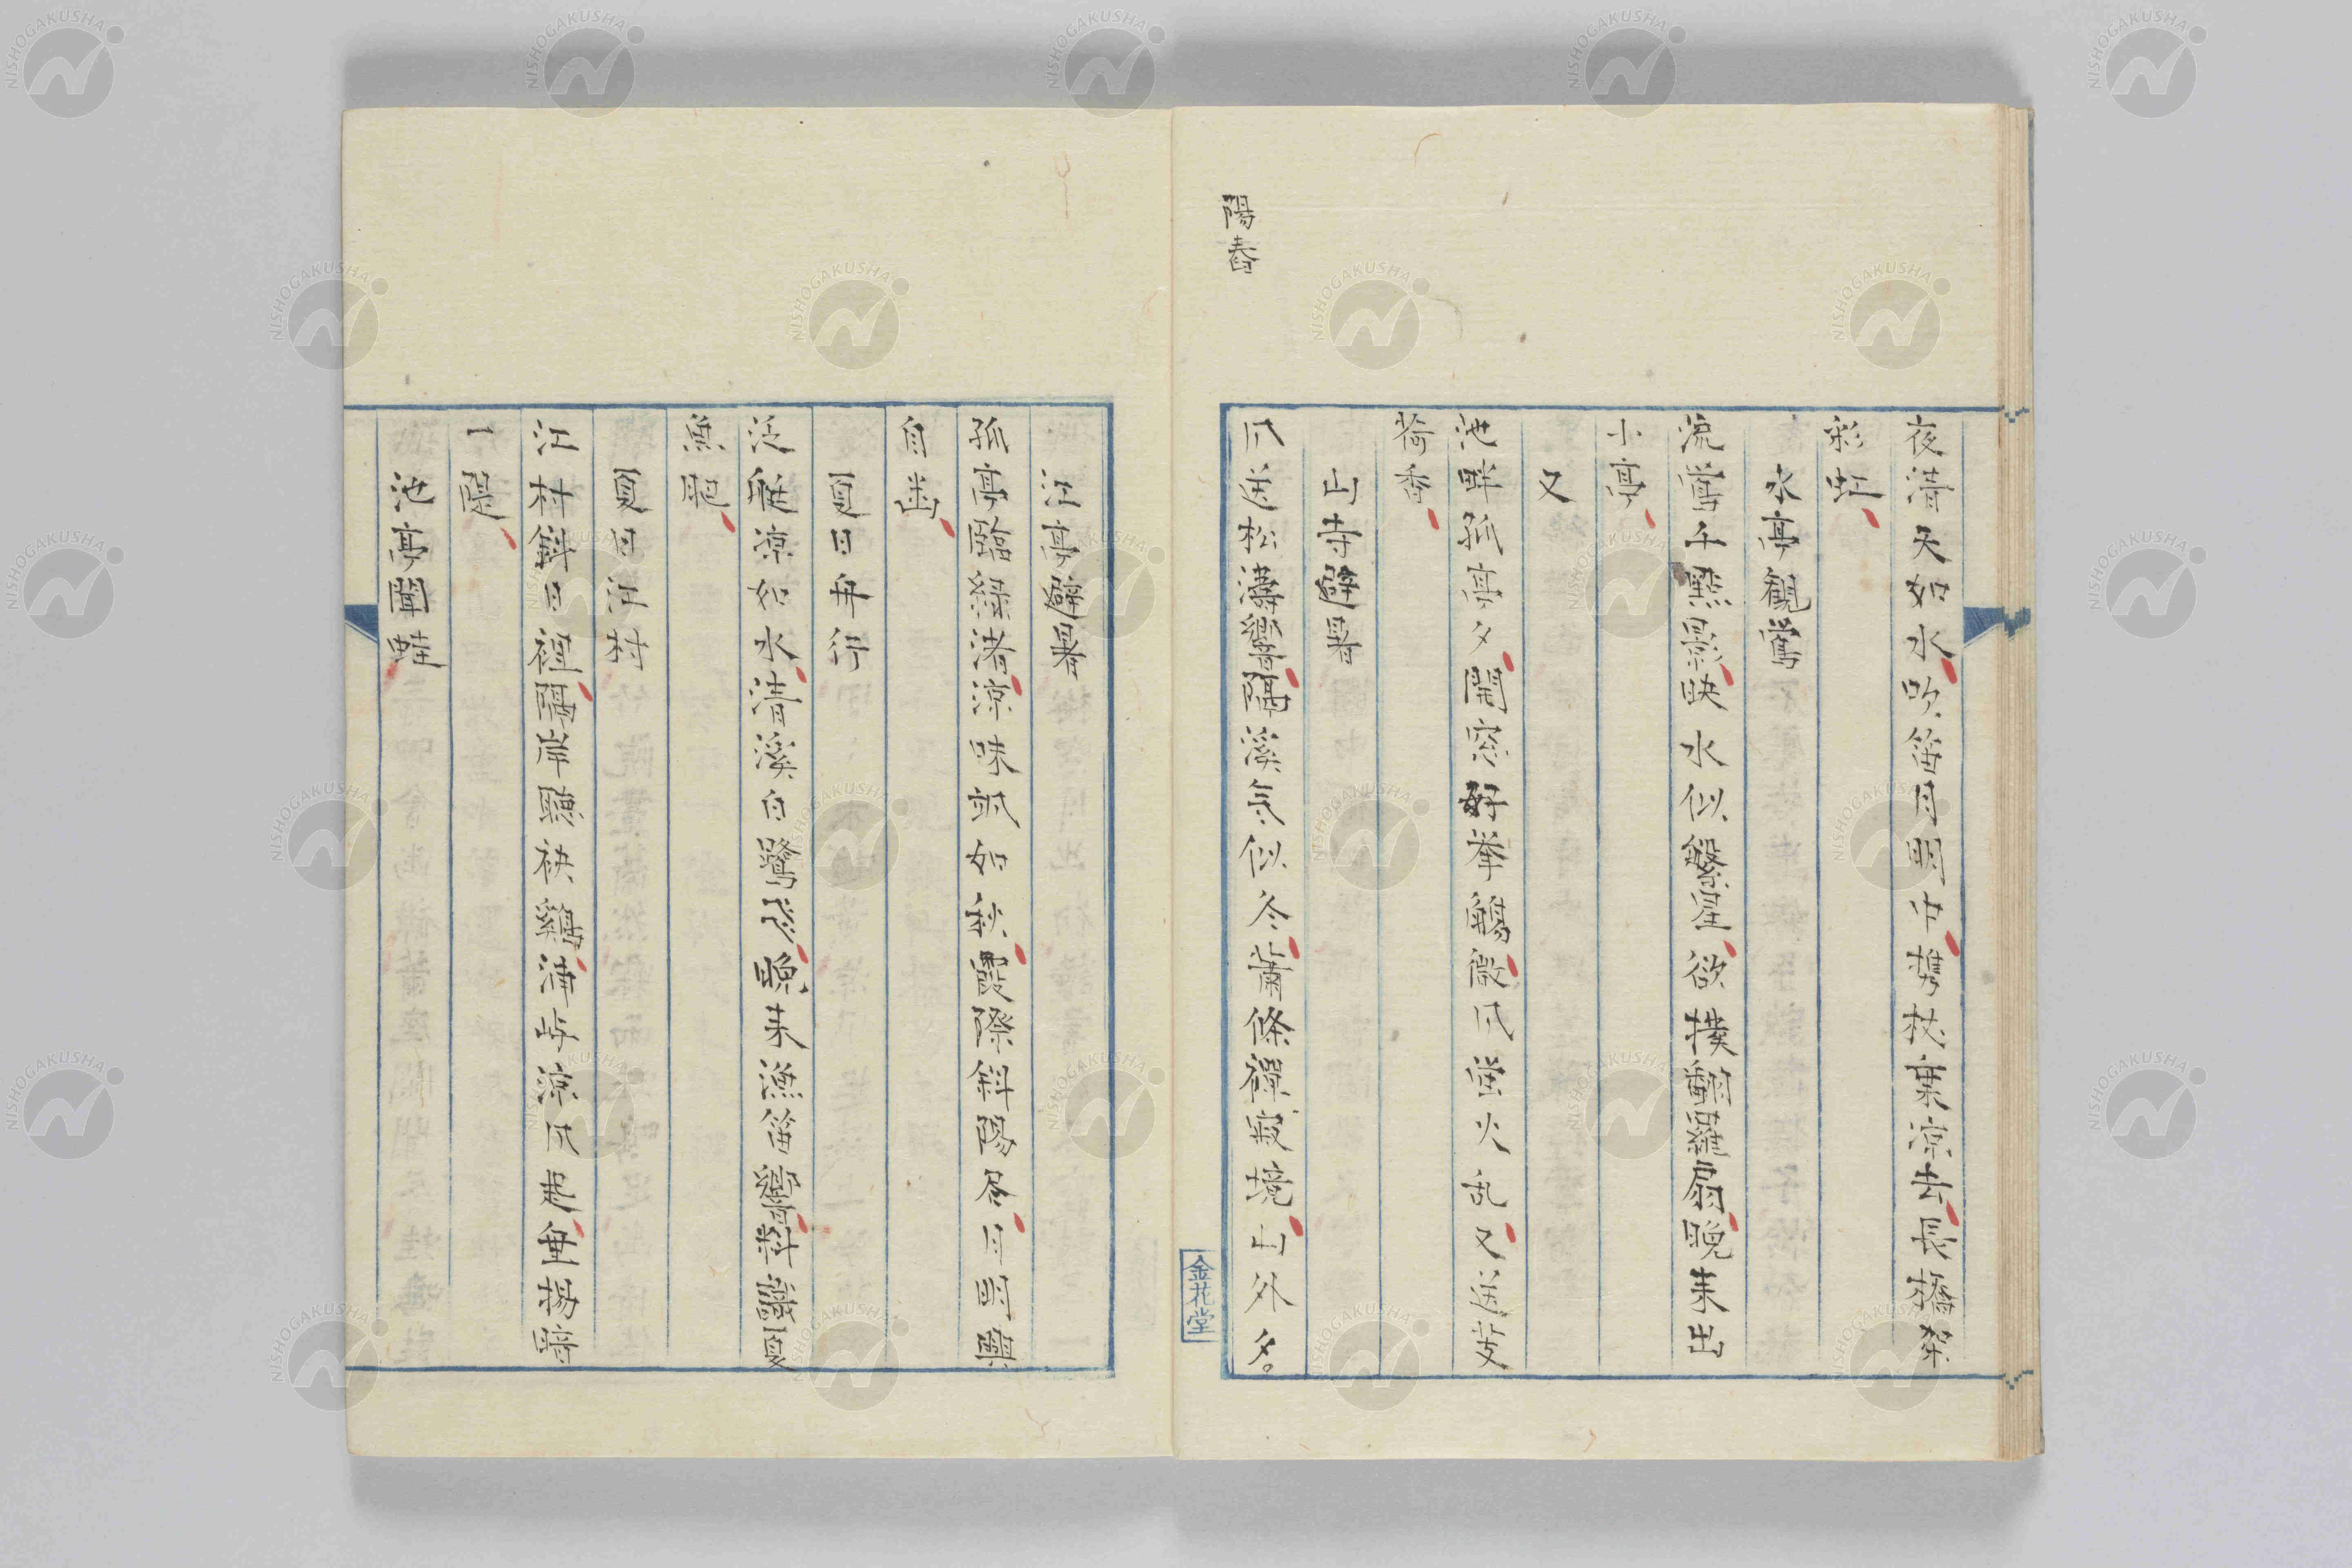 夜清天如水吹笛月明中携杖乗涼去長橋架
彩虹
水亭観蛍
流蛍千點影映水似繁星欲撲翻羅扇晩来出
小亭
又
池畔孤亭夕開窓好挙觴微风蛍火乱又送芰
荷香
山寺避暑
风送松濤響隔溪氣似冬蕭條禅寂境山外夕。
陽舂
金花堂
江亭避暑
孤亭臨緑渚涼味既如秋霞際斜陽沒月明興
自幽
夏日舟行
泛艇涼如水清溪白鷺飛晩来漁笛響料識夏
魚肥
夏日江村
江村斜日裡隔岸聴秧鶏浦上涼风起垂楊暗
一堤
池亭聞蛙
NISHOGAKUSHA